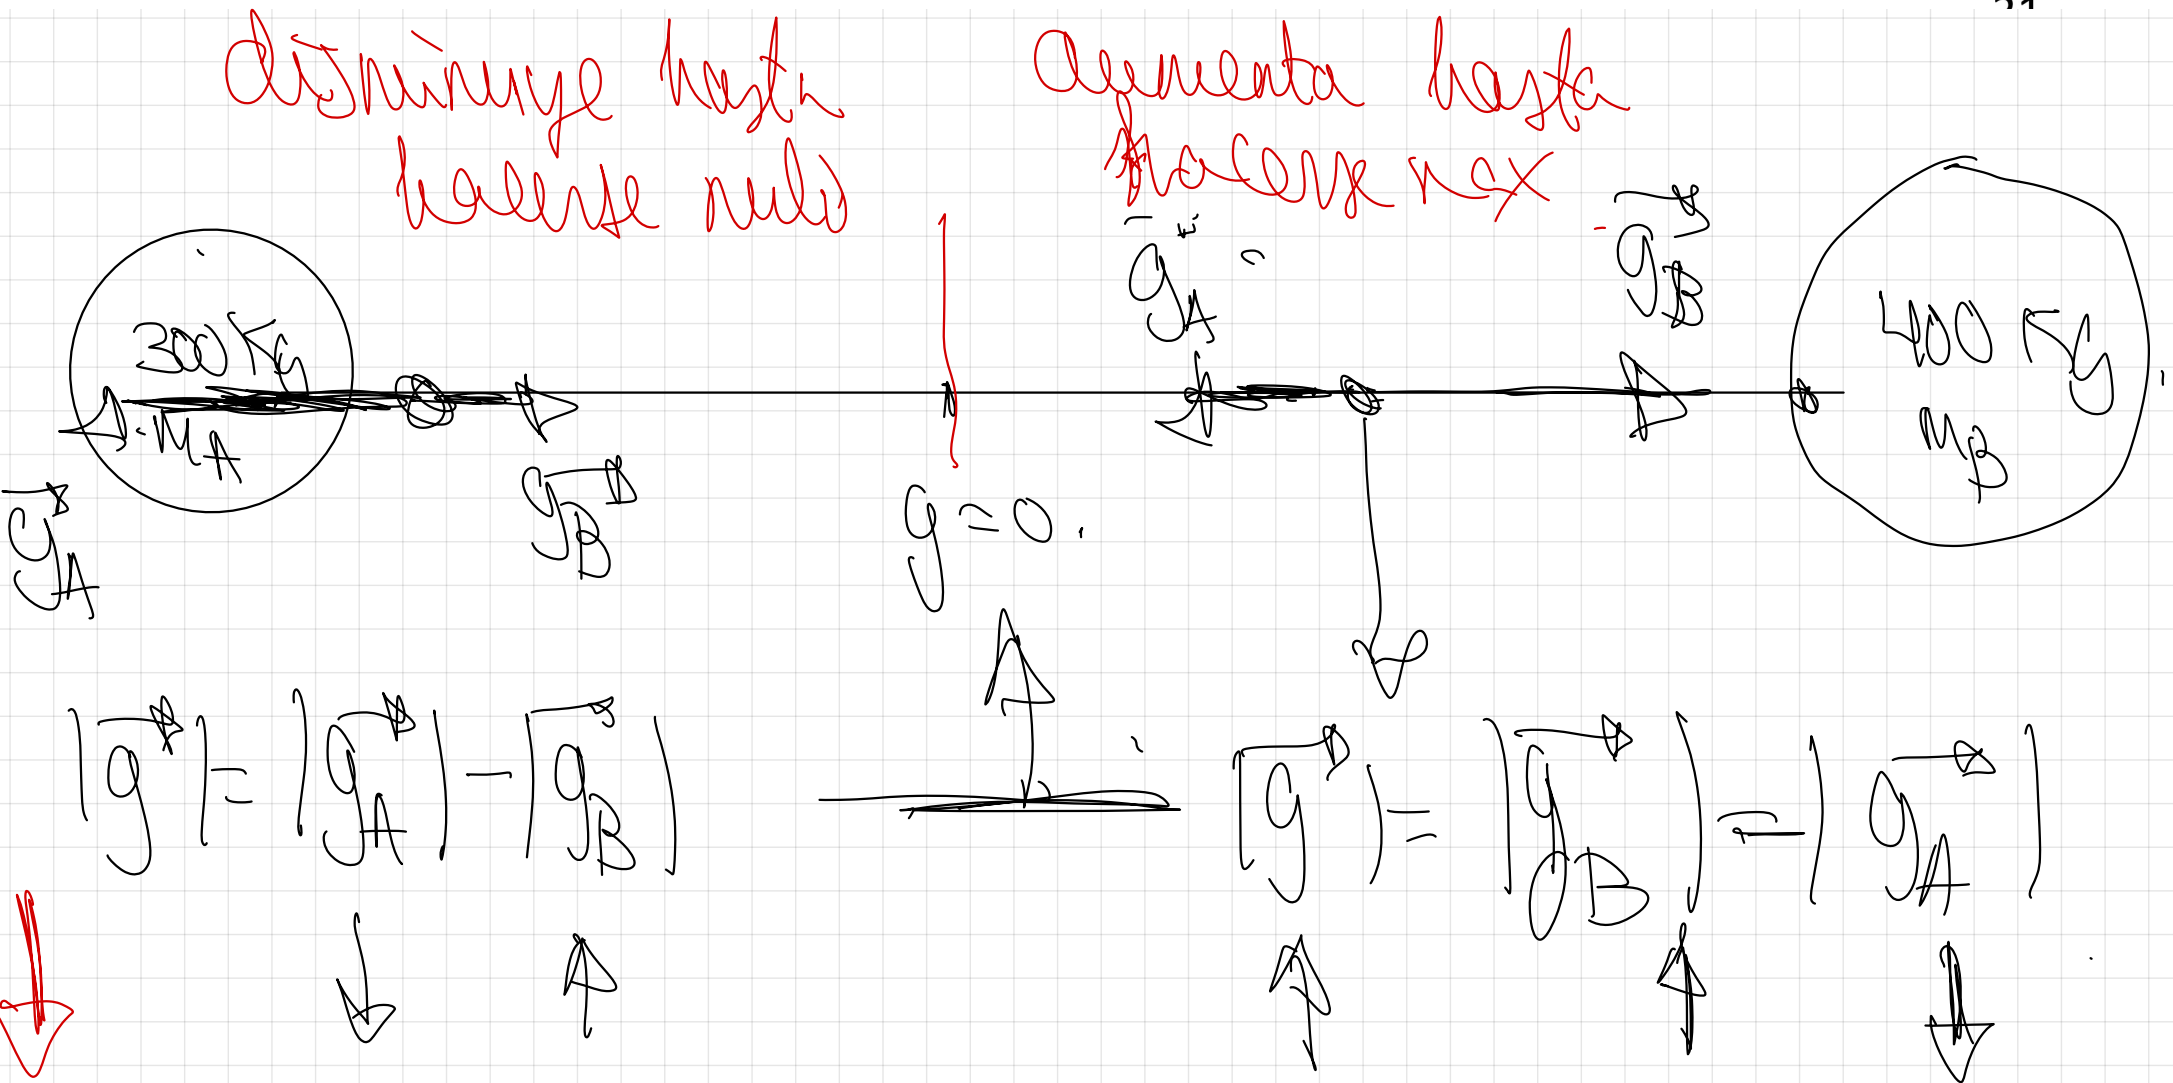 disminuye hasta
hacerse nulo
aumenta hasta
hacerse max
300 Kg
M_A
g_A
g_B
g = 0.
g_A
g_B
400 Kg
M_B
|g| = |g_A| - |g_B|
|g| = |g_B| - |g_A|